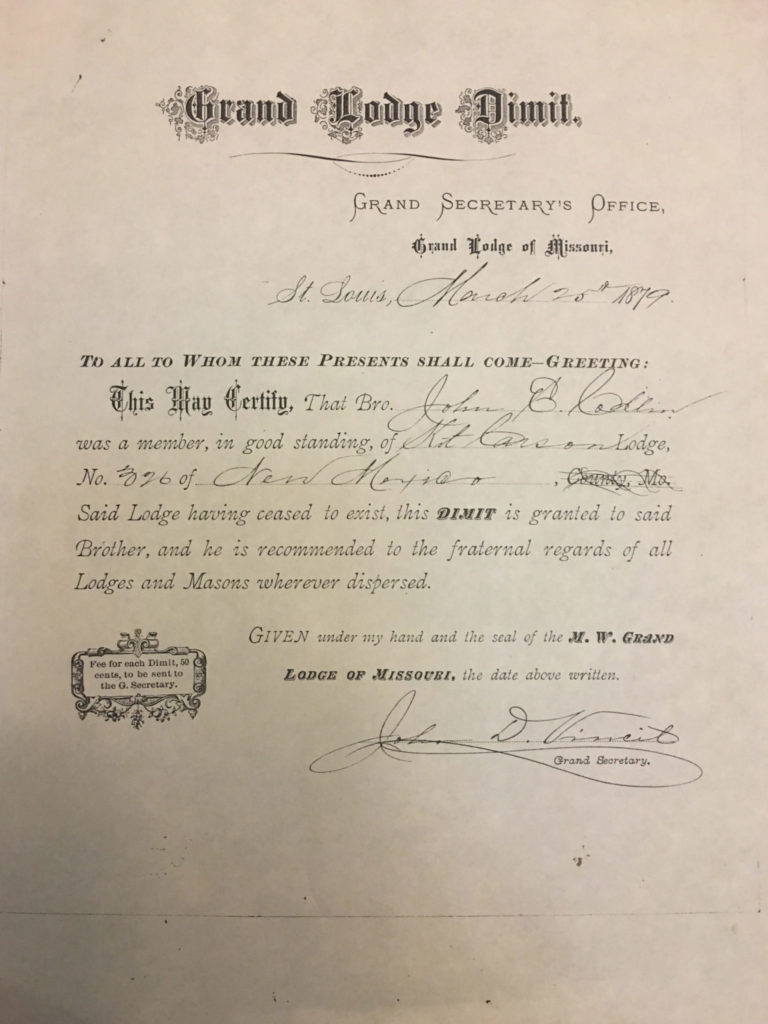 Grand Lodge Dimit.
GRAND SECRETARY'S OFFICE,
Grand Lodge of Missouri,
St. Louis, March 25th 1879.
TO ALL TO WHOM THESE PRESENTS SHALL COME—GREETING:
This May Certify, That Bro. John E. Codlin
was a member, in good standing, of Kit Carson Lodge,
No. 326 of New Mexico, County, Mo.
Said Lodge having ceased to exist, this DIMIT is granted to said
Brother, and he is recommended to the fraternal regards of all
Lodges and Masons wherever dispersed.
GIVEN under my hand and the seal of the M. W. GRAND
LODGE OF MISSOURI, the date above written.
Fee for each Dimit, 50
cents, to be sent to
the G. Secretary.
John D. Vincil
Grand Secretary.